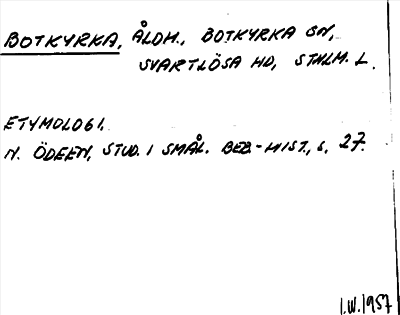 BOTKYRKA, ÅLDH., BOTKYRKA SN,
SVARTLÖSA HD, STHLM. L.
ETYMOLOGI.
N. ÖDEEN, STUD. I SMÅL. BEB.-HIST., S. 27.
I.W. 1957